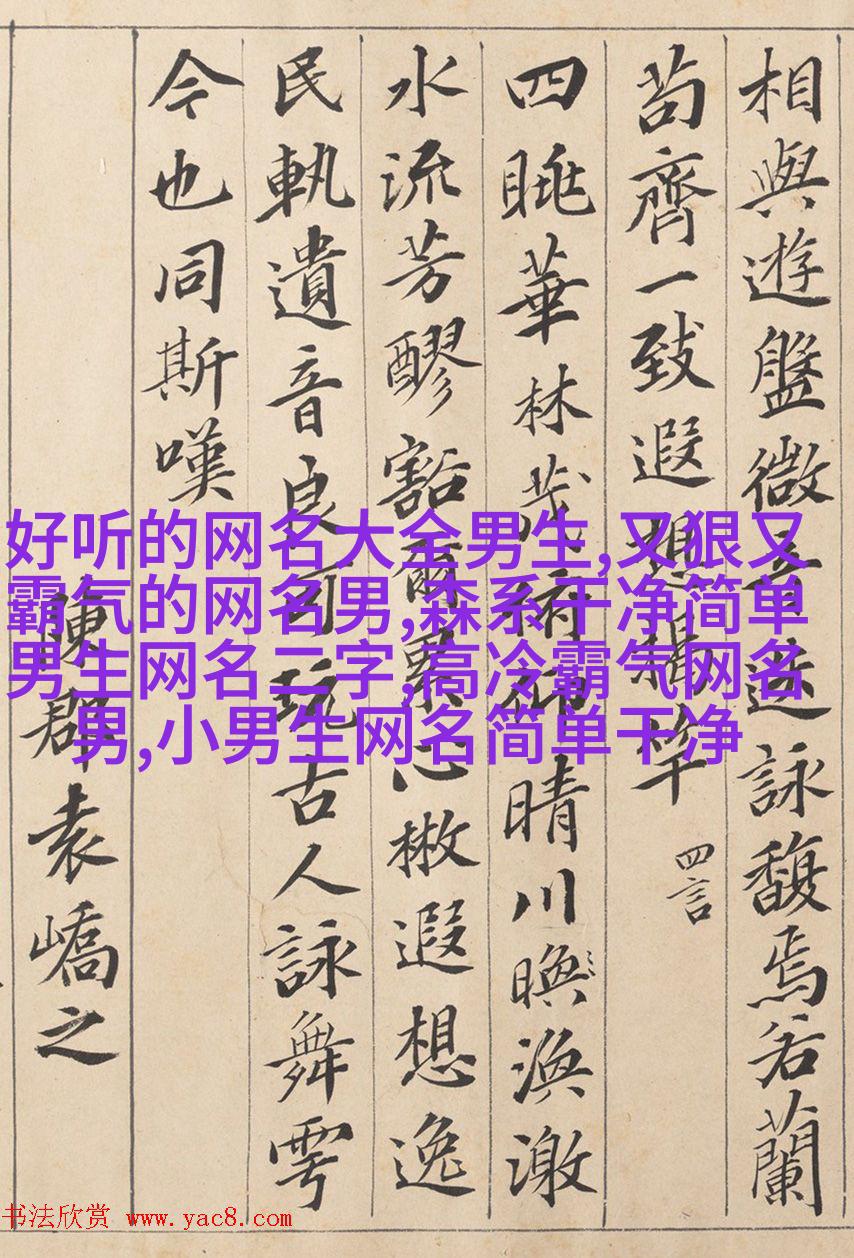 相與遊盤微音迭詠馥焉若蘭
苟齊一致遐想揭竿
四言
四眺華林茂俯仰晴川渙激
水流芳醪豁爾累心散遐想逸
民軌遺音良可玩古人詠舞雩
今也同斯嘆
陳郡袁嶠之
好听的网名大全男生,又狠又
霸气的网名男,森系干净简单
男生网名二字,高冷霸气网名
男,小男生网名简单干净
书法欣赏 www.yac8.com